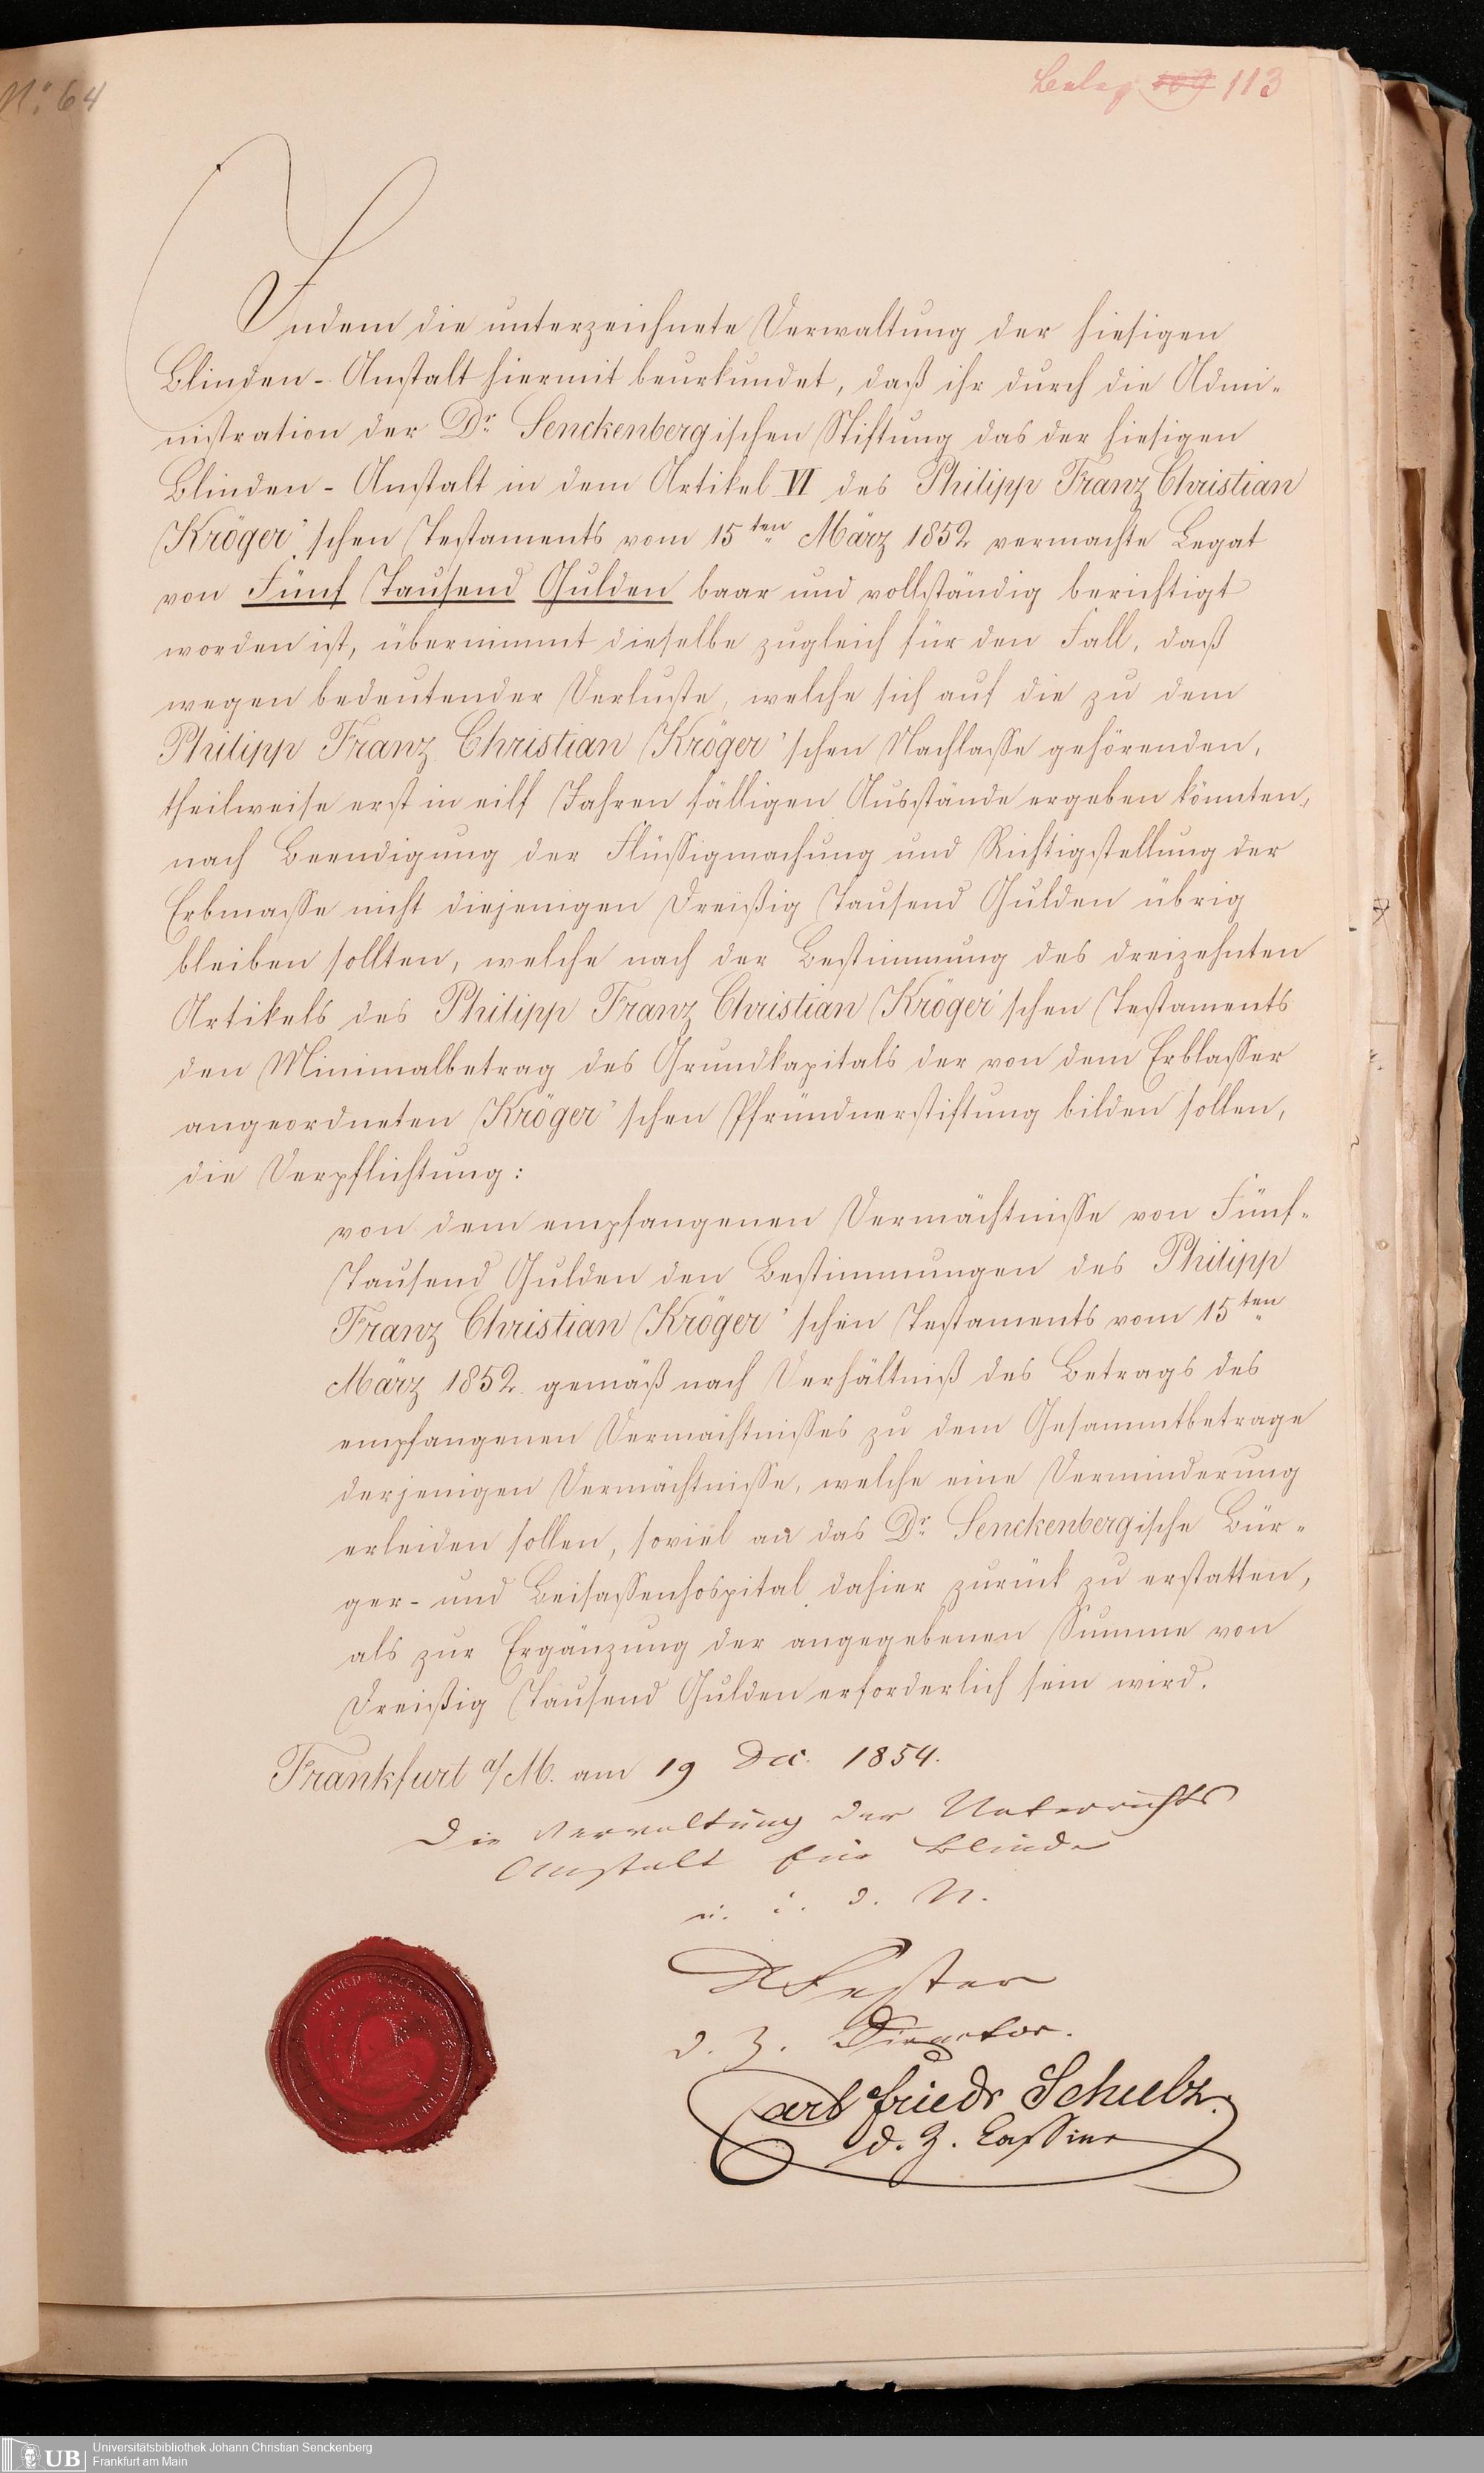 No. 64
Beilag 113
Indem die unterzeichnete Verwaltung der hiesigen
Blinden-Anstalt hiermit beurkundet, daß ihr durch die Admi-
nistration der Dr. Senckenbergischen Stiftung das der hiesigen
Blinden-Anstalt in dem Artikel VI des Philipp Franz Christian
Kröger'schen Testaments vom 15ten März 1852 vermachte Legat
von Fünf Tausend Gulden baar und vollständig berichtigt
worden ist, übernimmt dieselbe zugleich für den Fall, daß
wegen bedeutender Verluste, welche sich auf die zu dem
Philipp Franz Christian Kröger'schen Nachlasse gehörenden,
theilweise erst in eilf Jahren fälligen Ausstände ergeben könnten,
nach Beendigung der Flüssigmachung und Richtigstellung der
Erbmasse nicht diejenigen Dreißig Tausend Gulden übrig
bleiben sollten, welche nach der Bestimmung des dreizehnten
Artikels des Philipp Franz Christian Kröger'schen Testaments
den Minimalbetrag des Grundkapitals der von dem Erblasser
angeordneten Kröger'schen Pfründnerstiftung bilden sollen,
die Verpflichtung:
von dem empfangenen Vermächtnisse von Fünf-
Tausend Gulden den Bestimmungen des Philipp
Franz Christian Kröger'schen Testaments vom 15ten
März 1852. gemäß nach Verhältniß des Betrags des
empfangenen Vermächtnisses zu dem Gesammtbetrage
derjenigen Vermächtnisse, welche eine Verminderung
erleiden sollen, soviel an das Dr. Senckenbergische Bür-
ger- und Beisassenhospital dahier zurück zu erstatten,
als zur Ergänzung der angegebenen Summe von
Dreißig Tausend Gulden erforderlich sein wird.
Frankfurt a/M. am 19 Dec. 1854.
Die Verwaltung der Unterrichts
Anstalt für Blinde
u. i. d. N.
Fester
d. Z. Director.
Carl Friedr Schulz.
d. Z. Cassier
UB
Universitätsbibliothek Johann Christian Senckenberg
Frankfurt am Main